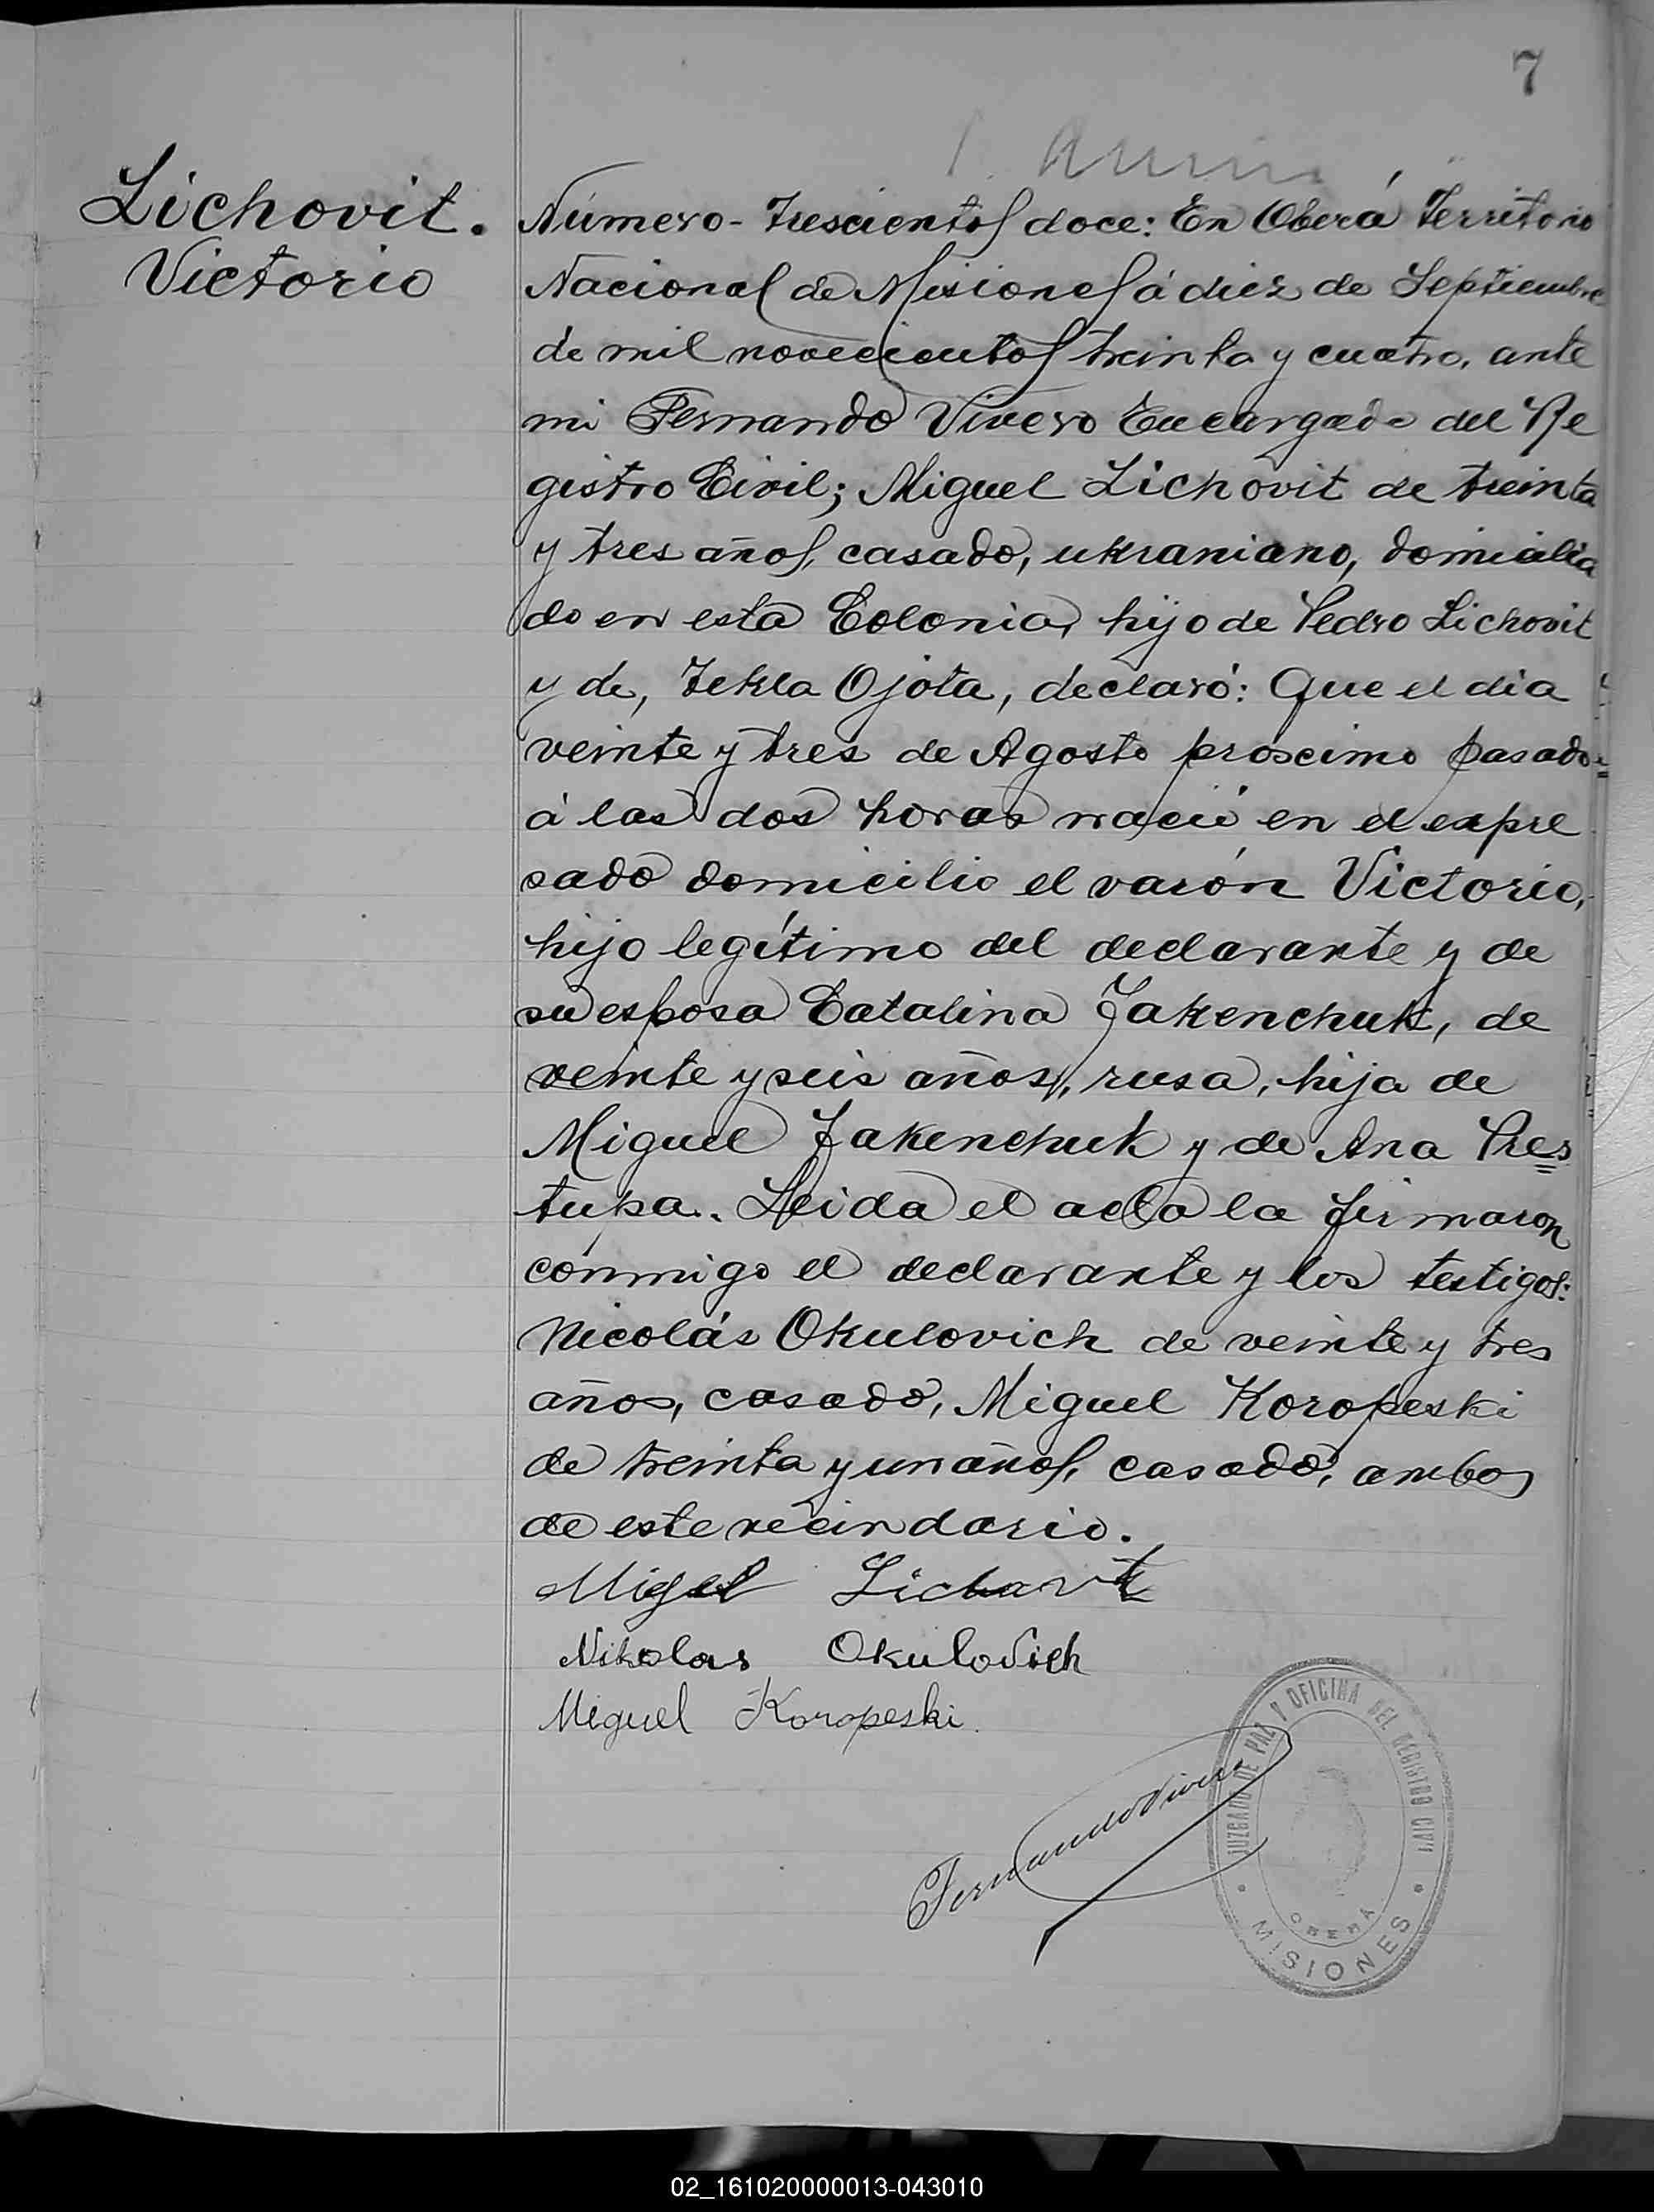 7
Lichovit.
Victorio
Número - Trescientos doce: En Oberá Territorio
Nacional de Misiones á diez de Septiembre
de mil novecientos treinta y cuatro, ante
mi Fernando Vivero Encargado del Re
gistro Civil; Miguel Lichovit de treinta
y tres años, casado, ukraniano, domicilia
do en esta Colonia, hijo de Pedro Lichovit
y de, Tekla Ojota, declaró: Que el dia
veinte y tres de Agosto proscimo pasado=
á las dos horas nació en el expre
sado domicilio el varón Victorio,
hijo legítimo del declarante y de
su esposa Catalina Jakenchuk, de
veinte y seis años, rusa, hija de
Miguel Jakenchuk y de Ana Pres=
tupa. Leida el acta la firmaron
conmigo el declarante y los testigos:
Nicolás Okulovich de veinte y tres
años, casado, Miguel Koropeski
de treinta y un años, casado, ambos
de este vecindario.
Migel Lichovit
Nikolas Okulovich
Miguel Koropeski.
Fernando Vivero
JUZGADO DE PAZ Y OFICINA DEL REGISTRO CIVIL
OBERÁ
* MISIONES *
02_161020000013-043010